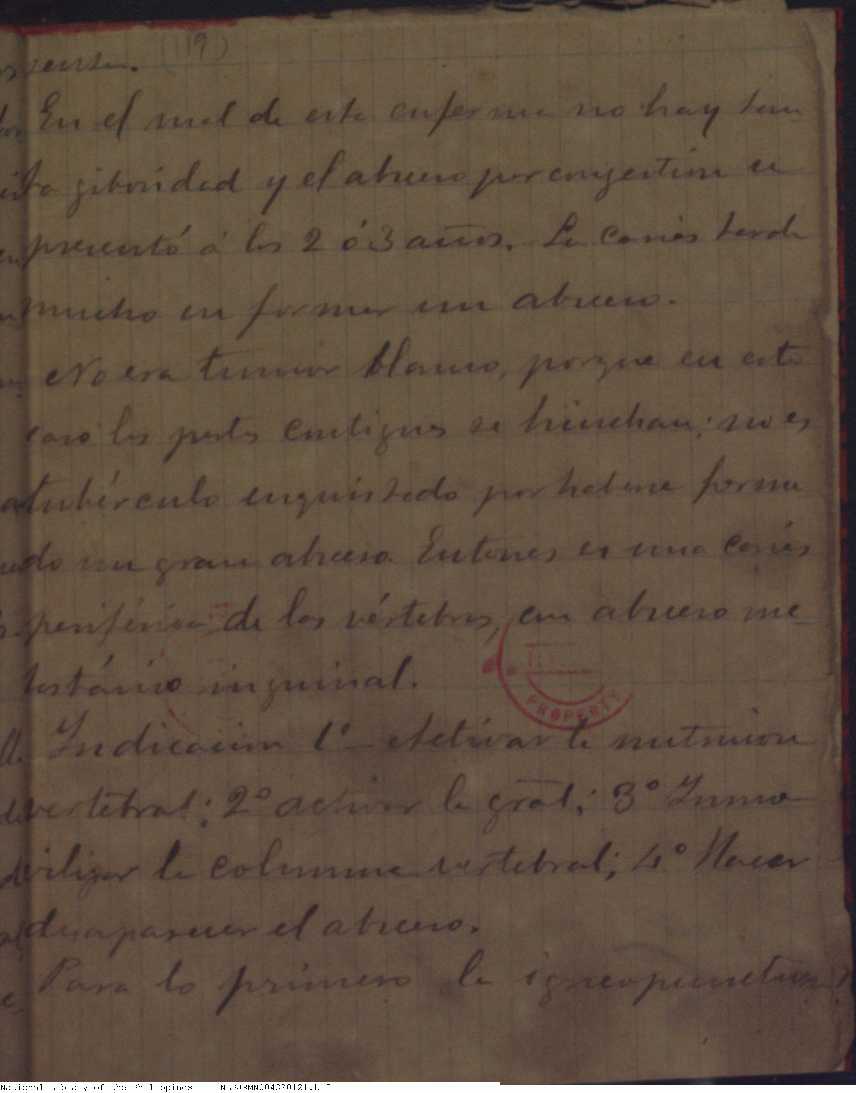 (119)
En el mal de esta enferma no hay tan
ta gibosidad y el absceso por congestion se
presentó á los 2 ó 3 años. La caries tarda
mucho en formar un absceso.
No era tumor blanco, porque en este
caso las partes contiguas se hinchan; no es
tubérculo enquistado por haberse forma
do un gran absceso. Entonces es una caries
periférica de las vértebras, con absceso me
tastásico inguinal.
Indicacion 1º Activar la nutricion
vertebral; 2º activar la gral; 3º Inmo
vilizar la columna vertebral; 4º Hacer
desaparecer el absceso.
Para lo primero la igneopuntura
PROPERTY
National Library of the Philippines